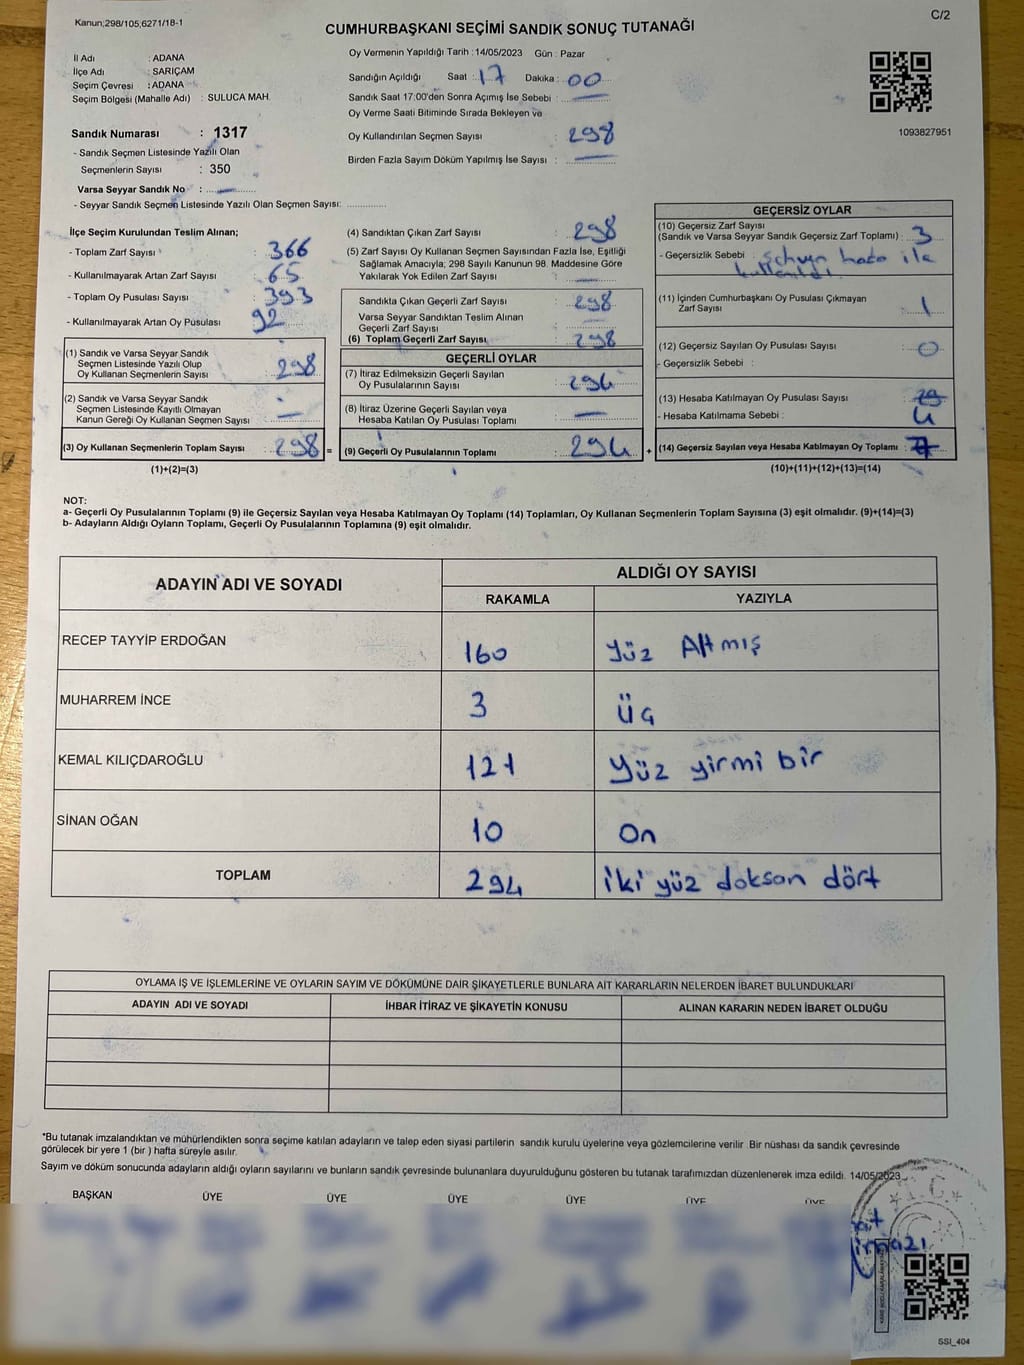 Kanun;298/105,6271/18-1
C/2
CUMHURBAŞKANI SEÇİMİ SANDIK SONUÇ TUTANAĞI
İl Adı : ADANA
İlçe Adı : SARIÇAM
Seçim Çevresi : ADANA
Seçim Bölgesi (Mahalle Adı) : SULUCA MAH.
Sandık Numarası : 1317
- Sandık Seçmen Listesinde Yazılı Olan
Seçmenlerin Sayısı : 350
Varsa Seyyar Sandık No : —
- Seyyar Sandık Seçmen Listesinde Yazılı Olan Seçmen Sayısı: ..............
Oy Vermenin Yapıldığı Tarih : 14/05/2023 Gün : Pazar
Sandığın Açıldığı Saat : 17 Dakika : 00
Sandık Saat 17:00'den Sonra Açımış İse Sebebi : —
Oy Verme Saati Bitiminde Sırada Bekleyen ve
Oy Kullandırılan Seçmen Sayısı : 298
Birden Fazla Sayım Döküm Yapılmış İse Sayısı : —
1093827951
İlçe Seçim Kurulundan Teslim Alınan;
- Toplam Zarf Sayısı : 366
- Kullanılmayarak Artan Zarf Sayısı : 65
- Toplam Oy Pusulası Sayısı : 393
- Kullanılmayarak Artan Oy Pusulası 92
(1) Sandık ve Varsa Seyyar Sandık
Seçmen Listesinde Yazılı Olup
Oy Kullanan Seçmenlerin Sayısı : 298
(2) Sandık ve Varsa Seyyar Sandık
Seçmen Listesinde Kayıtlı Olmayan
Kanun Gereği Oy Kullanan Seçmen Sayısı : —
(3) Oy Kullanan Seçmenlerin Toplam Sayısı : 298 =
(1)+(2)=(3)
(4) Sandıktan Çıkan Zarf Sayısı : 298
(5) Zarf Sayısı Oy Kullanan Seçmen Sayısından Fazla İse, Eşitliği
Sağlamak Amacıyla; 298 Sayılı Kanunun 98. Maddesine Göre
Yakılarak Yok Edilen Zarf Sayısı : —
Sandıkta Çıkan Geçerli Zarf Sayısı : 298
Varsa Seyyar Sandıktan Teslim Alınan
Geçerli Zarf Sayısı
(6) Toplam Geçerli Zarf Sayısı : 298
GEÇERLİ OYLAR
(7) İtiraz Edilmeksizin Geçerli Sayılan
Oy Pusulalarının Sayısı : 294
(8) İtiraz Üzerine Geçerli Sayılan veya
Hesaba Katılan Oy Pusulası Toplamı : —
(9) Geçerli Oy Pusulalarının Toplamı : 294 +
GEÇERSİZ OYLAR
(10) Geçersiz Zarf Sayısı
(Sandık ve Varsa Seyyar Sandık Geçersiz Zarf Toplamı) : 3
- Geçersizlik Sebebi : hata ile
kullanıldı
(11) İçinden Cumhurbaşkanı Oy Pusulası Çıkmayan
Zarf Sayısı : 1
(12) Geçersiz Sayılan Oy Pusulası Sayısı : 0
- Geçersizlik Sebebi :
(13) Hesaba Katılmayan Oy Pusulası Sayısı :
- Hesaba Katılmama Sebebi : 4
(14) Geçersiz Sayılan veya Hesaba Katılmayan Oy Toplamı :
(10)+(11)+(12)+(13)=(14)
NOT:
a- Geçerli Oy Pusulalarının Toplamı (9) ile Geçersiz Sayılan veya Hesaba Katılmayan Oy Toplamı (14) Toplamları, Oy Kullanan Seçmenlerin Toplam Sayısına (3) eşit olmalıdır. (9)+(14)=(3)
b- Adayların Aldığı Oyların Toplamı, Geçerli Oy Pusulalarının Toplamına (9) eşit olmalıdır.
ADAYIN ADI VE SOYADI
ALDIĞI OY SAYISI
RAKAMLA YAZIYLA
RECEP TAYYİP ERDOĞAN 160 Yüz Altmış
MUHARREM İNCE 3 Üç
KEMAL KILIÇDAROĞLU 121 Yüz yirmi bir
SİNAN OĞAN 10 On
TOPLAM 294 iki yüz doksan dört
OYLAMA İŞ VE İŞLEMLERİNE VE OYLARIN SAYIM VE DÖKÜMÜNE DAİR ŞİKAYETLERLE BUNLARA AİT KARARLARIN NELERDEN İBARET BULUNDUKLARI
ADAYIN ADI VE SOYADI İHBAR İTİRAZ VE ŞİKAYETİN KONUSU ALINAN KARARIN NEDEN İBARET OLDUĞU
*Bu tutanak imzalandıktan ve mühürlendikten sonra seçime katılan adayların ve talep eden siyasi partilerin sandık kurulu üyelerine veya gözlemcilerine verilir. Bir nüshası da sandık çevresinde
görülecek bir yere 1 (bir ) hafta süreyle asılır.
Sayım ve döküm sonucunda adayların aldığı oyların sayılarını ve bunların sandık çevresinde bulunanlara duyurulduğunu gösteren bu tutanak tarafımızdan düzenlenerek imza edildi. 14/05/2023
BAŞKAN ÜYE ÜYE ÜYE ÜYE ÜYE ÜYE
T.C.
SSI_404